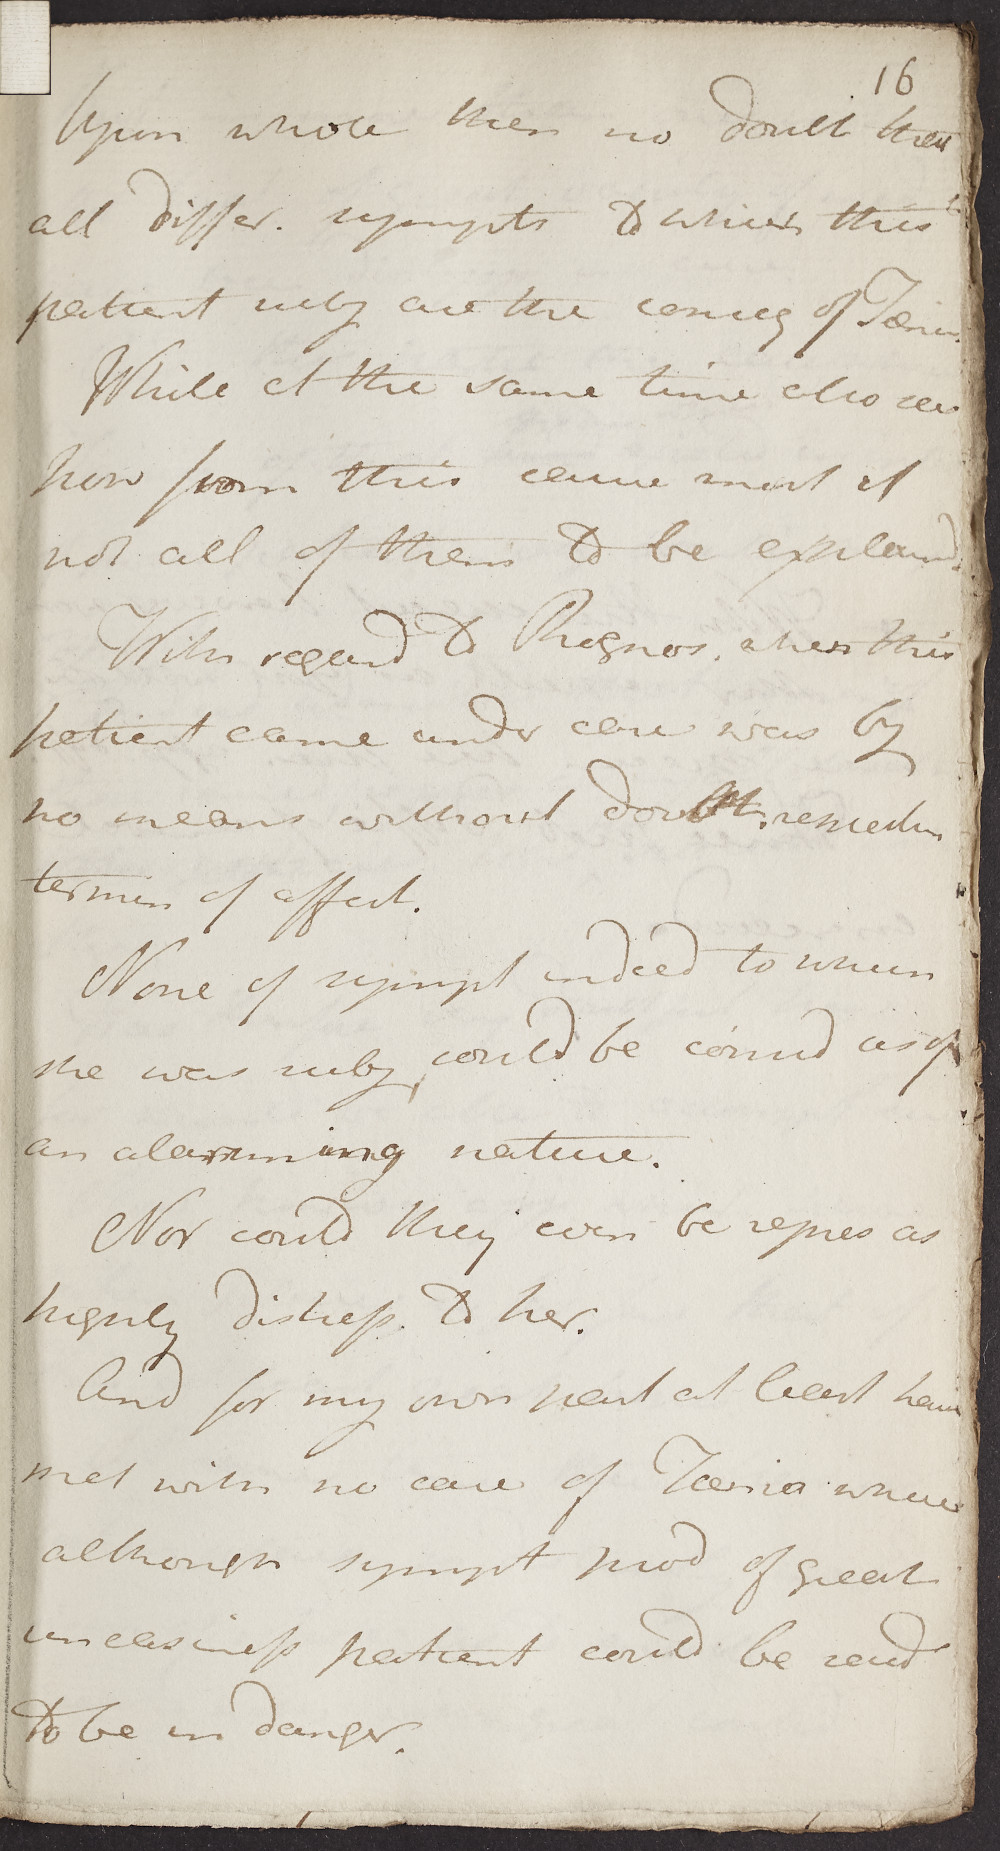 16
Upon whole then no doubt that
all differ. sympts to which this
patient subj are the conseq of Tæni
While at the same time also see
how from this cause most if
not all of them to be explaind.
With regard to Prognos. when this
patient came under care was by
no means without doubt, respectin
termin of affect.
None of sympt indeed to whi
she was subj, could be consid as of
an alarming nature.
Nor could they even be repres as
highly distress. to her.
And for my own part at least have
met with no case of Tænia where
although sympt prod of great
uneasiness patient could be said
to be in danger.